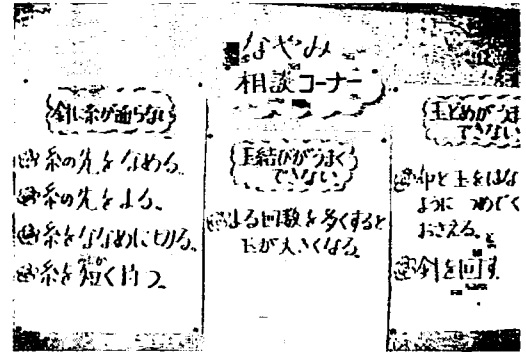 なやみ
相談コーナー
針に糸が通らない
糸の先をなめる。
糸の先をよる。
糸をななめに切る。
糸を短く持つ。
玉結びがうまく
できない
よる回数を多くすると
玉が大きくなる。
玉どめがうま
できない
布と玉をはな
ように つめで
おさえる。
針を回す